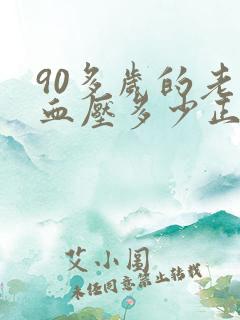 90多岁的老
血壓多少正
艾小图
未经同意禁止转载